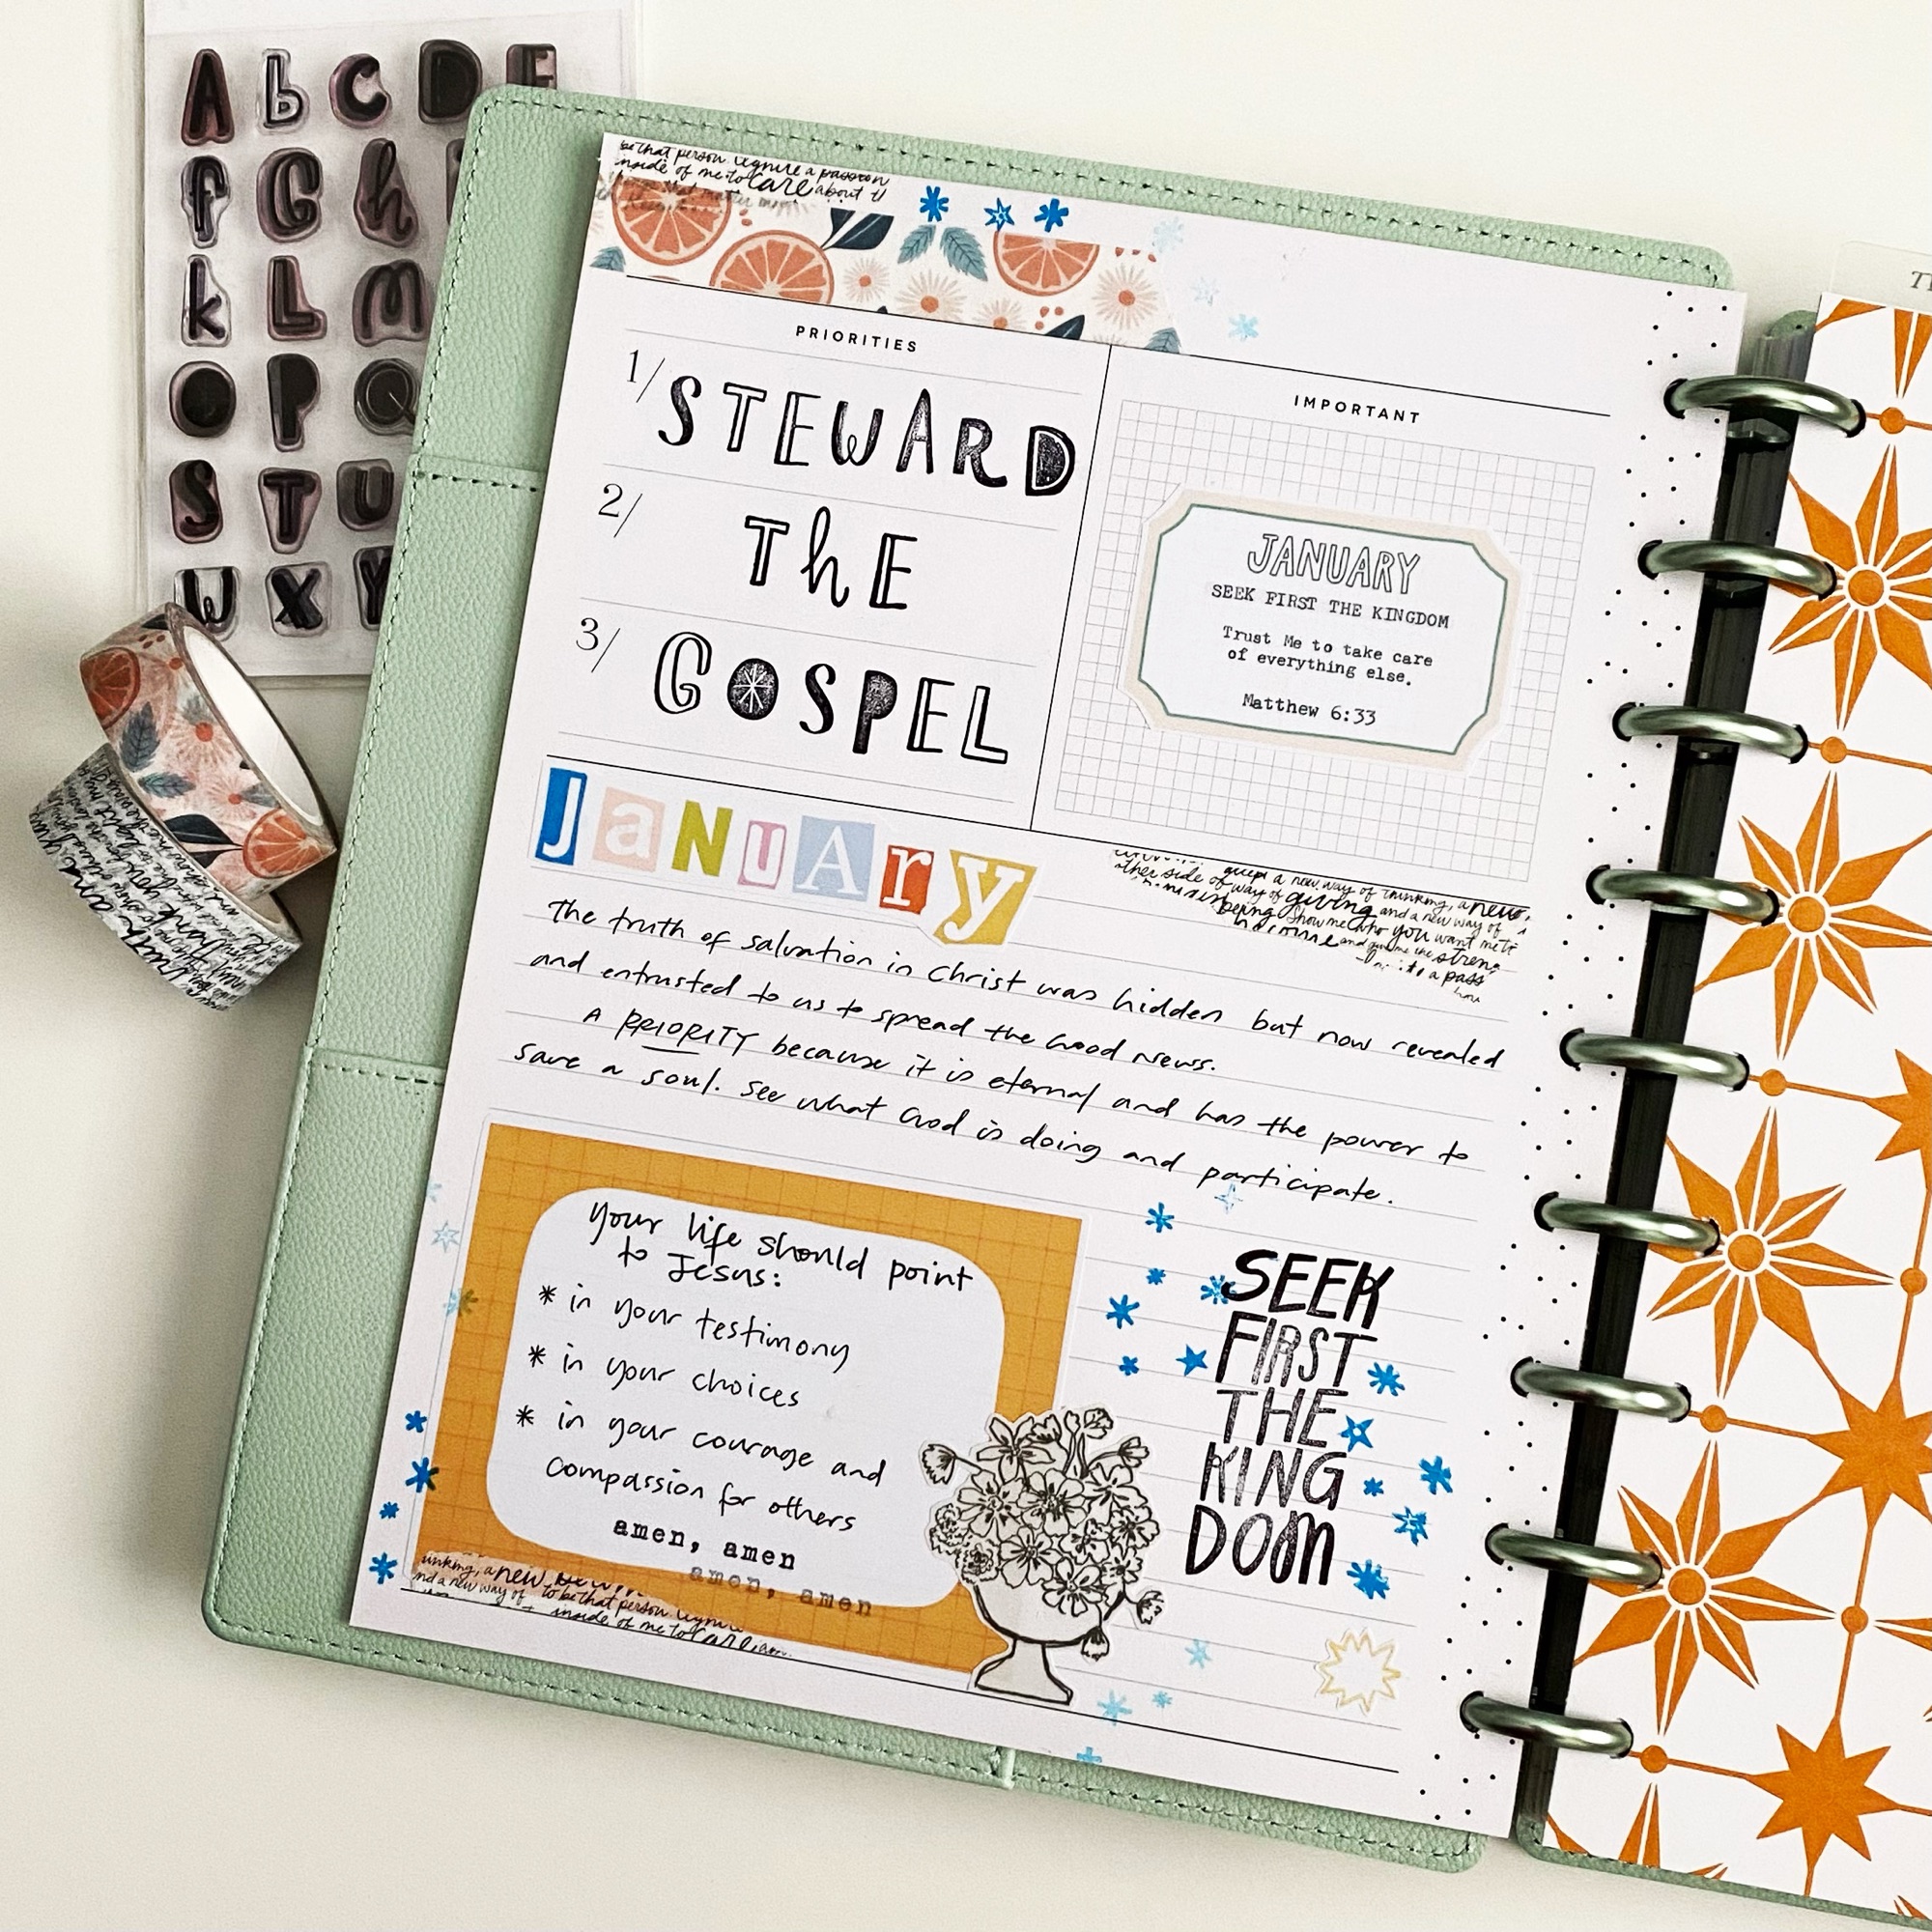 A b C D E
f G h
k L M
O P Q
S T U
W X Y
be that person. Ignite a passion
inside of me to care about
PRIORITIES
1/ STEWARD
2/ ThE
3/ GOSPEL
IMPORTANT
JANUARY
SEEK FIRST THE KINGDOM
Trust Me to take care
of everything else.
Matthew 6:33
JaNUAry
accept a new way of thinking, a new
other side of way of giving and a new way of
being Show me who you want me to
become and give me the
a pass
The truth of salvation in Christ was hidden but now revealed
and entrusted to us to spread the Good News.
A PRIORITY because it is eternal and has the power to
save a soul. See what God is doing and participate.
Your life should point
to Jesus:
* in your testimony
* in your choices
* in your courage and
compassion for others
amen, amen
amen, amen
a new
nd a new way of to be that person. Ignite
inside of me to care
SEEK
FIRST
THE
KING
DOM